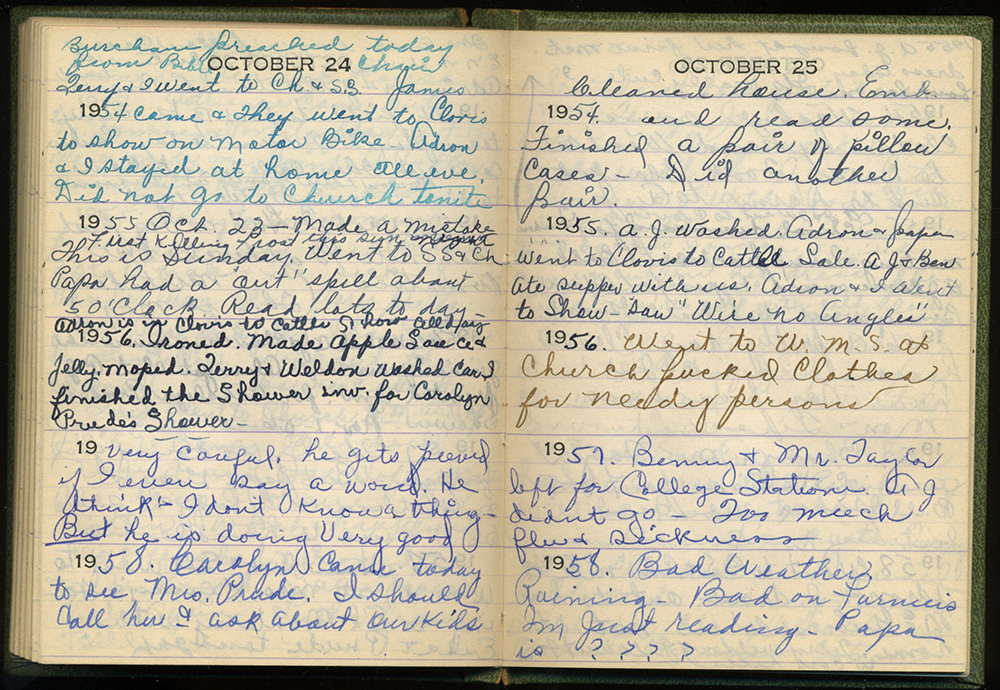 Burcham preached today
from Bible Chair
OCTOBER 24
Terry & I went to Ch. & S.S. James
1954 came & they went to Clovis
to show on Motor Bike. Adron
& I stayed at home all eve.
Did not go to Church tonite
1955 Oct. 23 - Made a mistake
First Killing Frost
This is Sunday Went to SS & Ch
Papa had a "out" spell about
5 O'Clock. Read lots to day -
Adron is in Clovis to Cattle Show all day
1956. Ironed. Made Apple Sauce &
Jelly. Moped. Terry & Weldon Washed Car. I
finished the Shower inv. for Carolyn
Prude's Shower -
19 Very Careful. he gits peeved
if I even say a word. He
thinks I dont Know a thing -
But he is doing Very good
1958. Carolyn Came today
to see Mrs. Prude. I should
Call her & ask about our Kids
OCTOBER 25
Cleaned house. Emb.
1954. and read some.
Finished a pair of pillow
Cases - Did another
pair.
1955. A.J. Washed. Adron & Papa
went to Clovis to Cattle Sale. A J & Ben
ate supper with us. Adron & I went
to Show - Saw "We're no Angles"
1956. Went to W. M. S. at
Church packed Clothes
for needy persons
1957. Benny & Mr. Taylor
left for College Station. A J
didnt go - Too much
flu & sickness
1958. Bad Weather
Raining - Bad on Farmers
Im Just reading - Papa
is ? ? ? ?